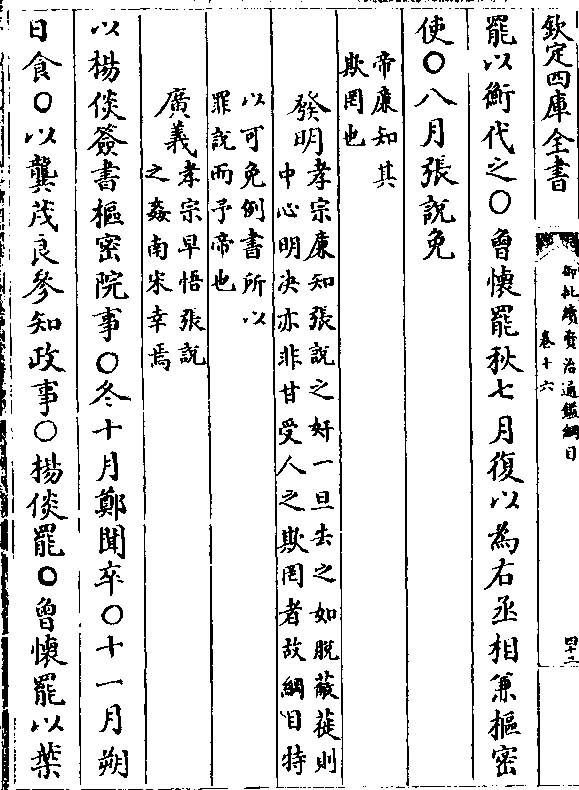 欽定四庫全書
御批續資治通鑑綱目
卷十六
四十二
罷以衡代之○曾懷罷秋七月復以為右丞相兼樞密
使○八月張說免
帝廉知其
欺罔也
發明孝宗廉知張說之奸一旦去之如脫蔽蓰則
中心明决亦非甘受人之欺罔者故綱目特
以可免例書所以
罪說而予帝也
廣義孝宗早悟張說
之姦南宋幸焉
以楊倓簽書樞密院事○冬十月鄭聞卒○十一月朔
日食○以龔茂良參知政事○楊倓罷○曾懷罷以葉